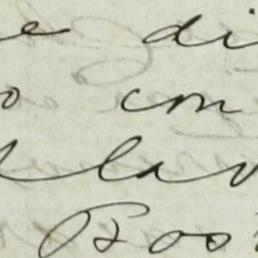 e di
o con
lav
Boo